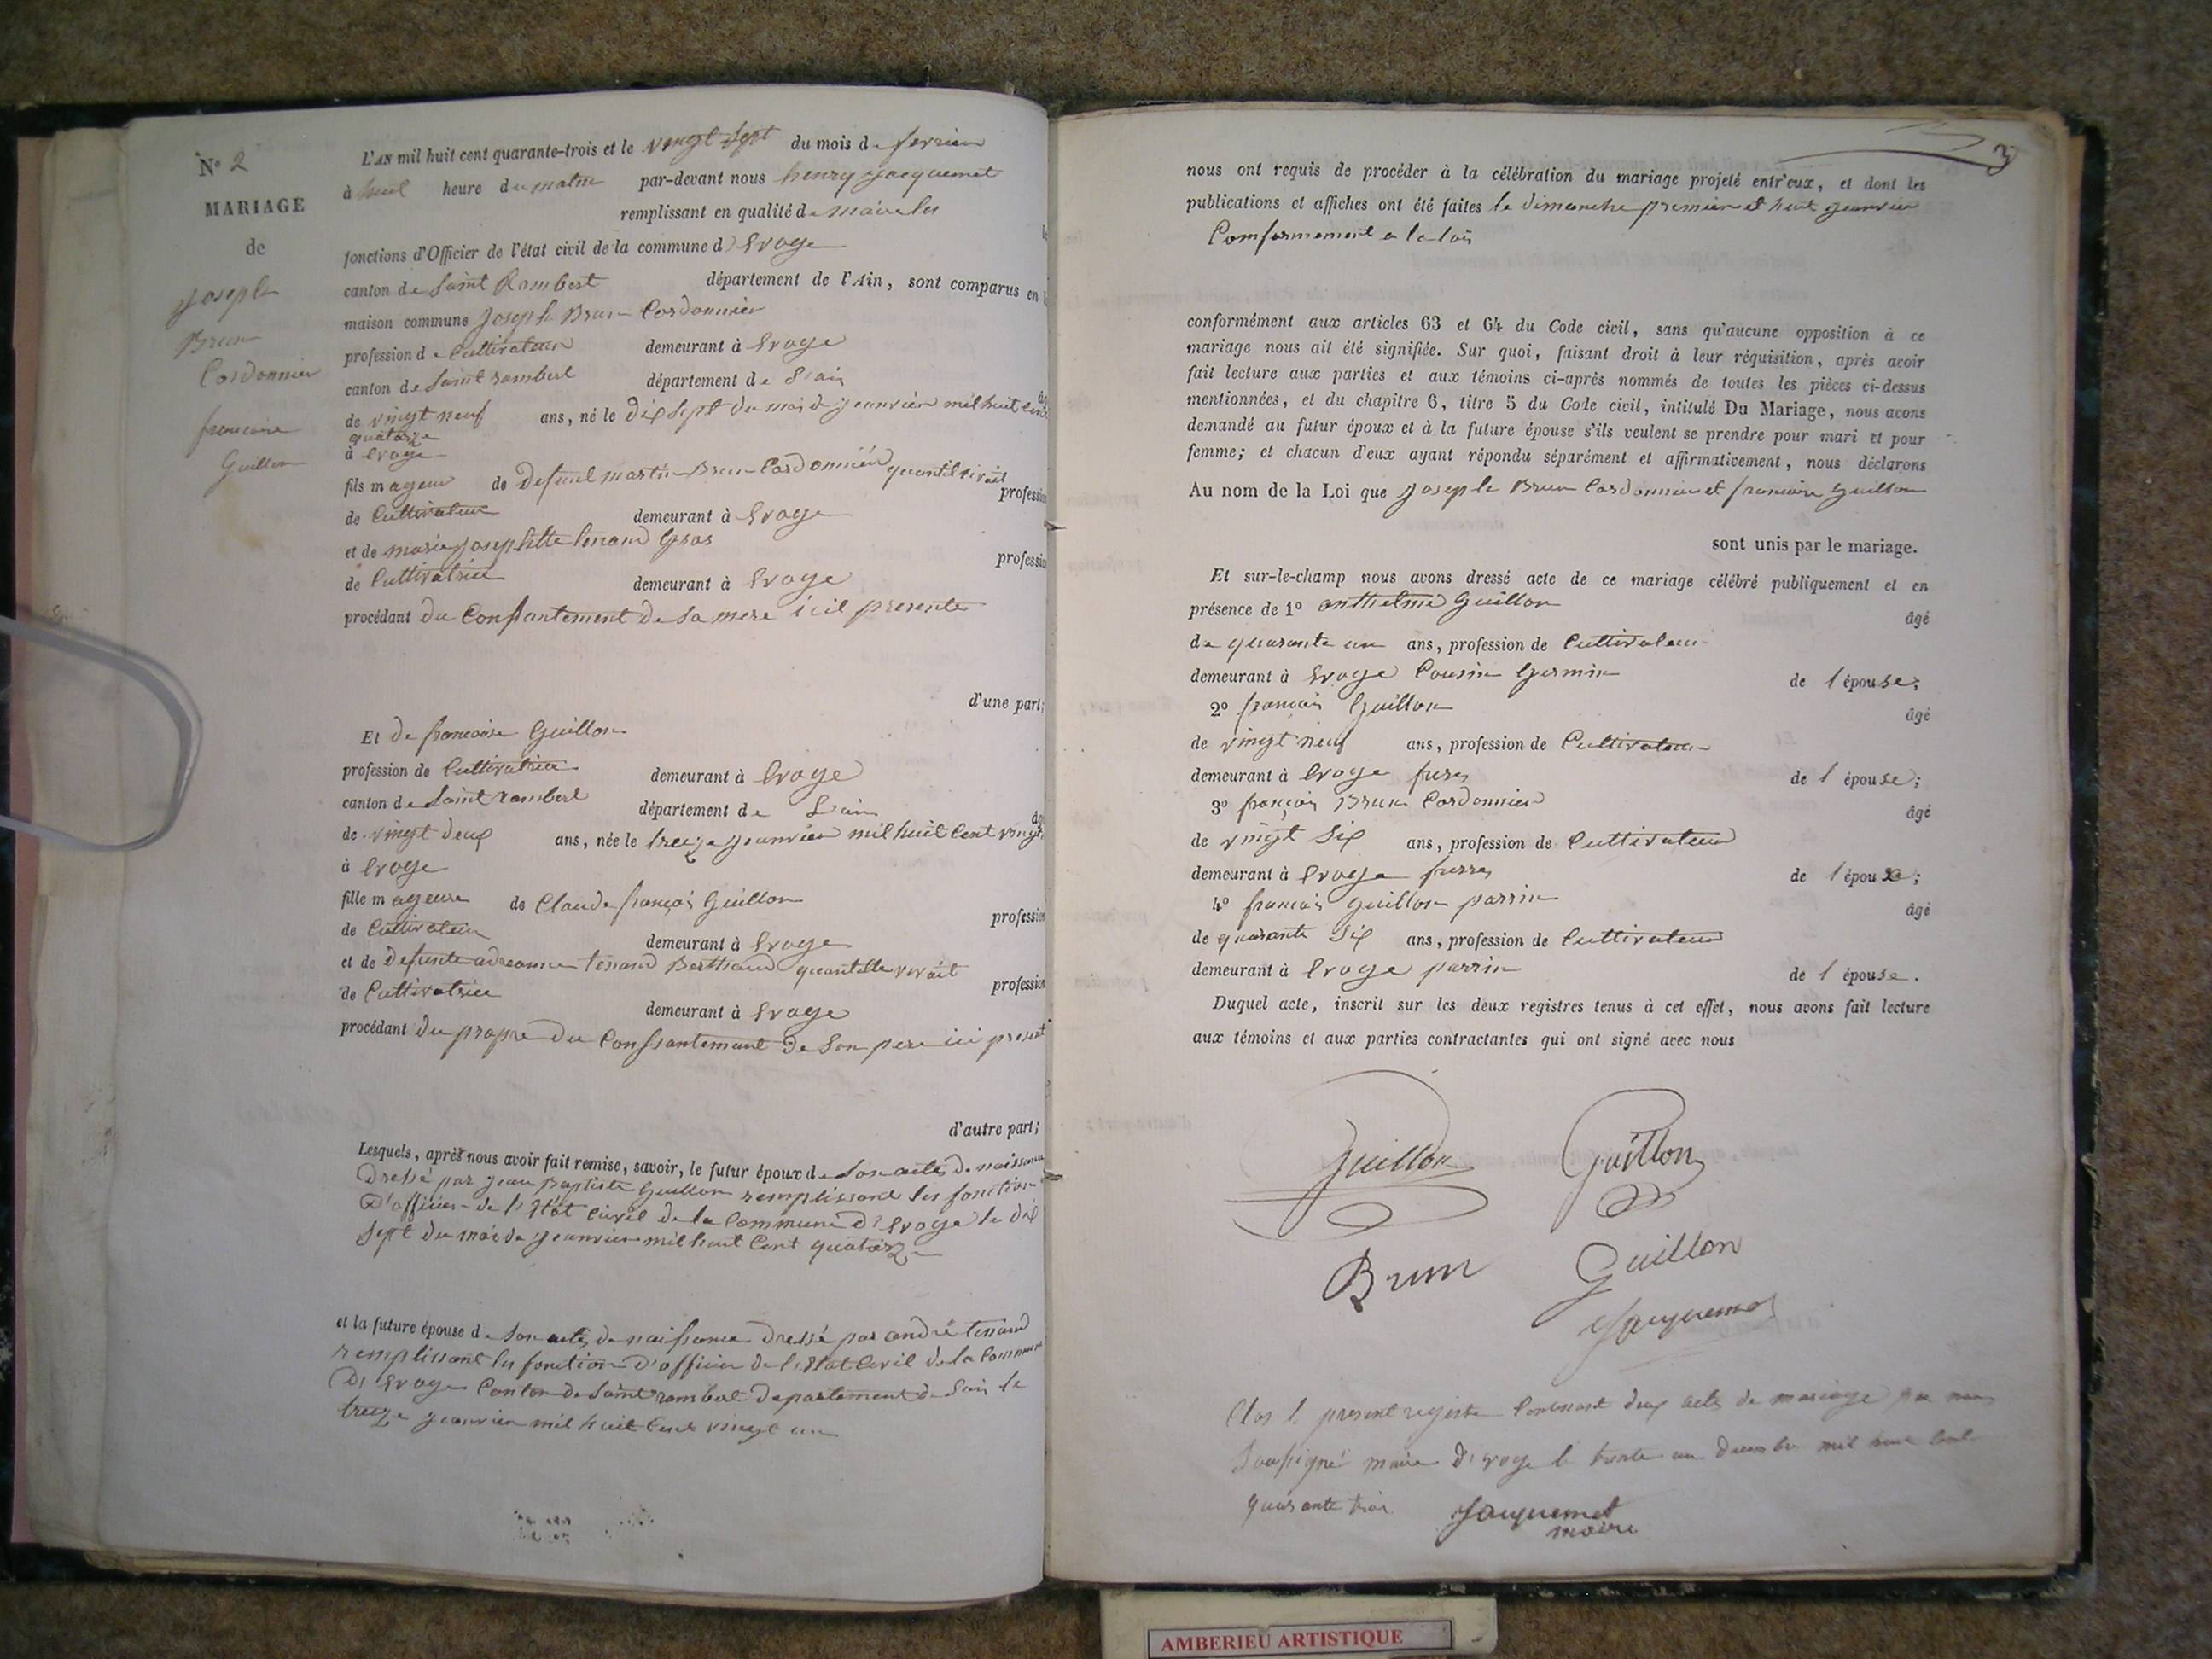 N° 2
MARIAGE
de
Joseph
Brun
Cordonnier
francoise
Guillon
L'AN mil huit cent quarante-trois et le vingt sept du mois de fevrier
à huit heure du matin par-devant nous henry Jacquemet
remplissant en qualité de maire les
fonctions d'Officier de l'état civil de la commune d'Evoge
canton de Saint Rambert département de l'Ain, sont comparus en la
maison commune Joseph Brun Cordonnier
profession de Cultivateur demeurant à Evoge
canton de Saint rambert département de l'ain
de vingt neuf ans, né le dix sept du moi de jeanvier mil huit cent
quatorze
à Evoge
fils mageur de defunt martin Brun Cordonnier quantil vivait
profession
de Cultivateur demeurant à Evoge
et de marie Josephtte tenand Gras
profession
de Cultivatrice demeurant à Evoge
procédant du Consantement de sa mere icil presente
d'une part;
Et de francoise Guillon
profession de Cultivatrice demeurant à Evoge
canton de Saint rambert département de l'ain
de vingt deux ans, née le treize jeanvier mil huit Cent vingt
à Evoge
fille mageure de Claude françois Guillon
profession
de Cultivateur demeurant à Evoge
et de defunte tenand Berthaud quantelle vivait
profession
de Cultivatrice
demeurant à Evoge
procédant du propre du Consantement de Son pere ici present
d'autre part;
Lesquels, après nous avoir fait remise, savoir, le futur époux de Son acte de naissance
Dressé par jean Baptiste Guillon remplissant les fonction
D'officier de l'Etat Civil de la Commune d'Evoge le dix
sept du moi de jeanvier mil huit Cent quatorze
et la future épouse de Son acte de naissance Dressé par andré tenand
remplissant les fonction D'officier de l'Etat Civil de la Commune
D'Evoge Canton de Saint rambert departement de l'ain le
treize jeanvier mil huit Cent vingt un
3
nous ont requis de procéder à la célébration du mariage projeté entr'eux, et dont les
publications et affiches ont été faites le dimanche premier et huit jeanvier
Comformement a la loi
conformément aux articles 63 et 64 du Code civil, sans qu'aucune opposition à ce
mariage nous ait été signifiée. Sur quoi, faisant droit à leur réquisition, après avoir
fait lecture aux parties et aux témoins ci-après nommés de toutes les pièces ci-dessus
mentionnées, et du chapitre 6, titre 5 du Code civil, intitulé Du Mariage, nous avons
demandé au futur époux et à la future épouse s'ils veulent se prendre pour mari et pour
femme; et chacun d'eux ayant répondu séparément et affirmativement, nous déclarons
Au nom de la Loi que Joseph Brun Cordonnier et francoise Guillon
sont unis par le mariage.
Et sur-le-champ nous avons dressé acte de ce mariage célébré publiquement et en
présence de 1° anthelme Guillon
âgé
de quarante un ans, profession de Cultivateur
demeurant à Evoge Cousin Germin de l'épouse;
2° francois Guillon âgé
de vingt neuf ans, profession de Cultivateur
demeurant à Evoge freres de l'épouse;
3° françois Brun Cordonnier âgé
de vingt Six ans, profession de Cultivateur
demeurant à Evoge freres de l'époux;
4° francois Guillon parrin âgé
de quarante Six ans, profession de Cultivateur
demeurant à Evoge parrin de l'épouse.
Duquel acte, inscrit sur les deux registres tenus à cet effet, nous avons fait lecture
aux témoins et aux parties contractantes qui ont signé avec nous
Guillon Guillon
Brun Guillon
Jacquemet
Clos le present registre Contenant deux actes de mariage par nous
Soussigné maire d'Evoge le trente un decembre mil huit Cent
quarante trois Jacquemet
maire
AMBERIEU ARTISTIQUE